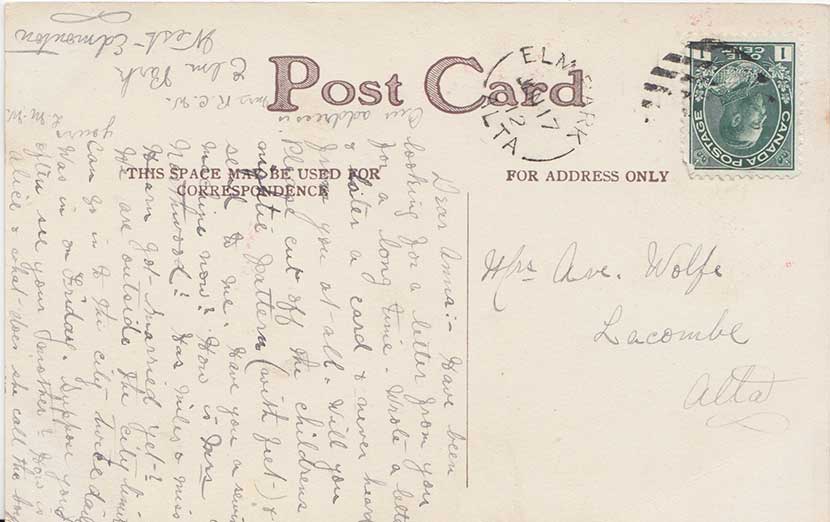 Post Card
THIS SPACE MAY BE USED FOR
CORRESPONDENCE
FOR ADDRESS ONLY
ELM PARK
17
12
ALTA
CANADA POSTAGE
1 1
Mrs Ave. Wolfe
Lacombe
Alta
Dear Anna:- Have been
looking for a letter from you
for a long time. Wrote a letter
& later a card & never heard
from you at-all. Will you
Please cut off the childrens
mantle pattern (with feet-) &
send to me. Have you a sewing
machine now? How is
Northwood? Has Miles & miss
Hearn got-married yet-?
We are outside the city limit
Can go in to the city twice daily
Was in on Friday. Suppose you
often see your mother? How is
Alice & what-does she call the boy
yours
E.M.W.
Our address is
Mrs R.C.W.
Elm Park
West-Edmonton